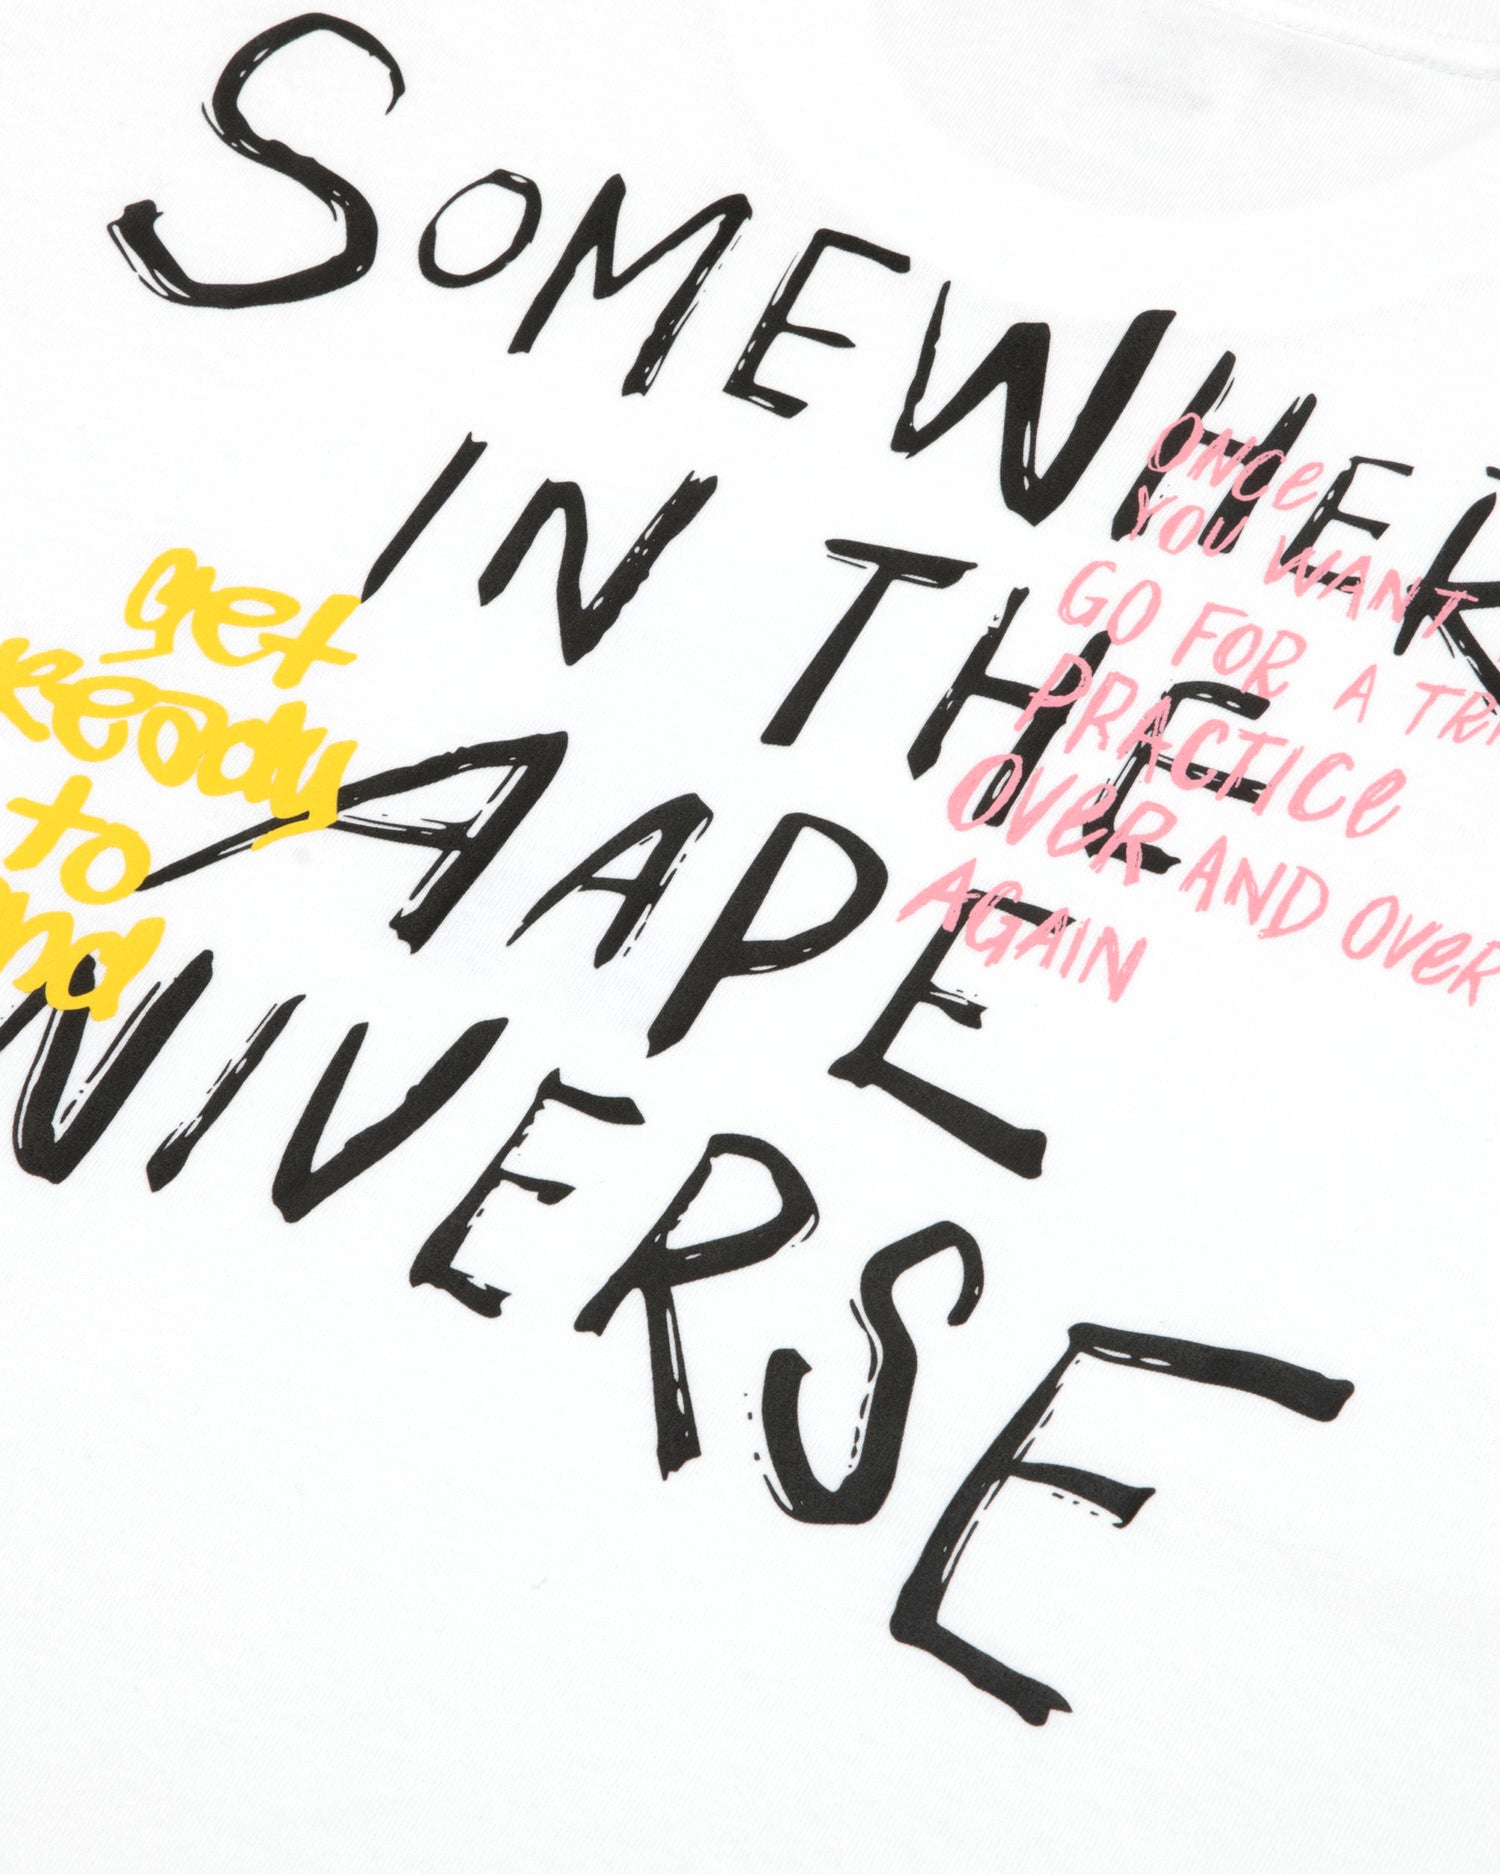 SOMEWHER
IN THE
AAPE
NIVERSE
get
ready
to
ONCe
YOU WANT
GO FOR A TRI
PRACTICe
OVeR AND OVeR
AGAIN